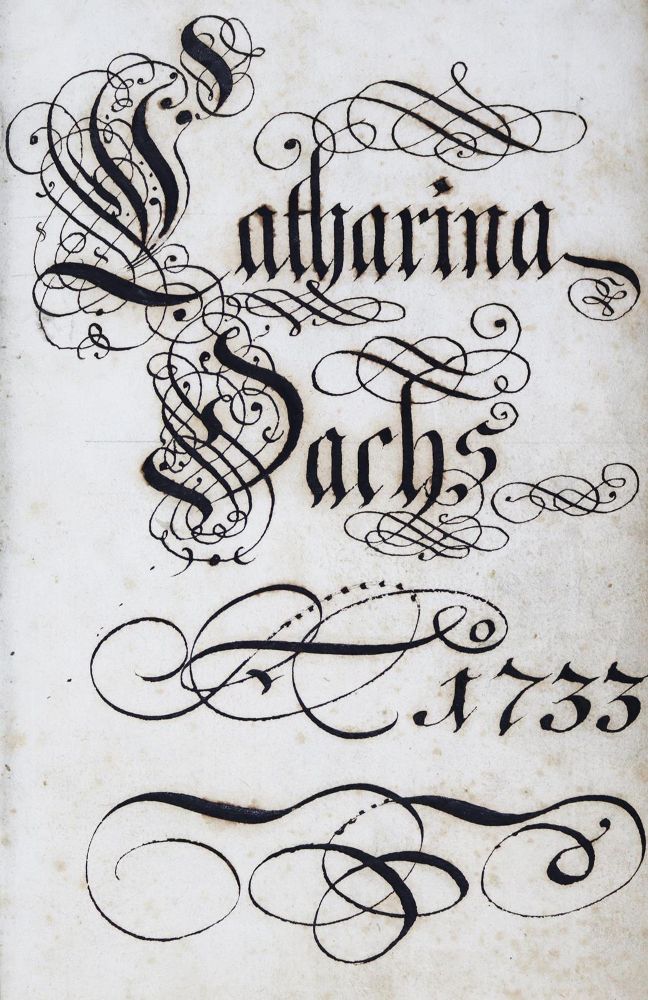 Catharina
Dachs
Aº 1733